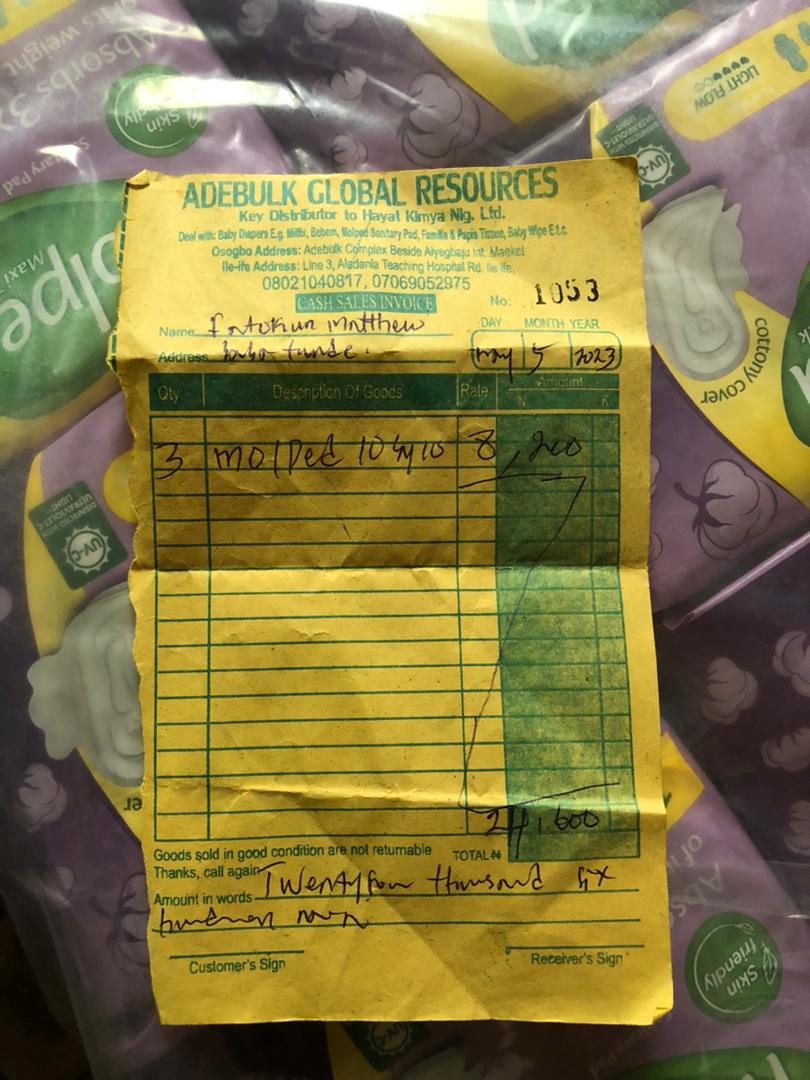 ADEBULK GLOBAL RESOURCES
Key Distributor to Hayat Kimya Nig. Ltd.
Deal with: Baby Diapers E.g. Molfix, Bebem, Molped Sanitary Pad, Familia & Papia Tissue, Baby Wipe E.t.c.
Osogbo Address: Adebulk Complex Beside Aiyegbaju Int. Market
Ile-ife Address: Line 3, Aladanla Teaching Hospital Rd. Ile Ife,
08021040817, 07069052975
CASH SALES INVOICE No: 1053
Name Fatokun Matthew
DAY MONTH YEAR
Address baba tunde. May 5 2023
Qty Description Of Goods Rate Amount
N K
3 Molped 8,200
24,600
Goods sold in good condition are not returnable
Thanks, call again TOTAL ₦
Amount in words Twenty four thousand six
hundred naira
Customer's Sign Receiver's Sign
Absorbs 3x
of its weight
Skin friendly
Sanitary Pad
Maxi
LIGHT FLOW
DISINFECTED WITH ULTRAVIOLET-C LIGHT
UV-C
cottony cover
DISINFECTED WITH ULTRAVIOLET-C LIGHT
UV-C
Skin friendly